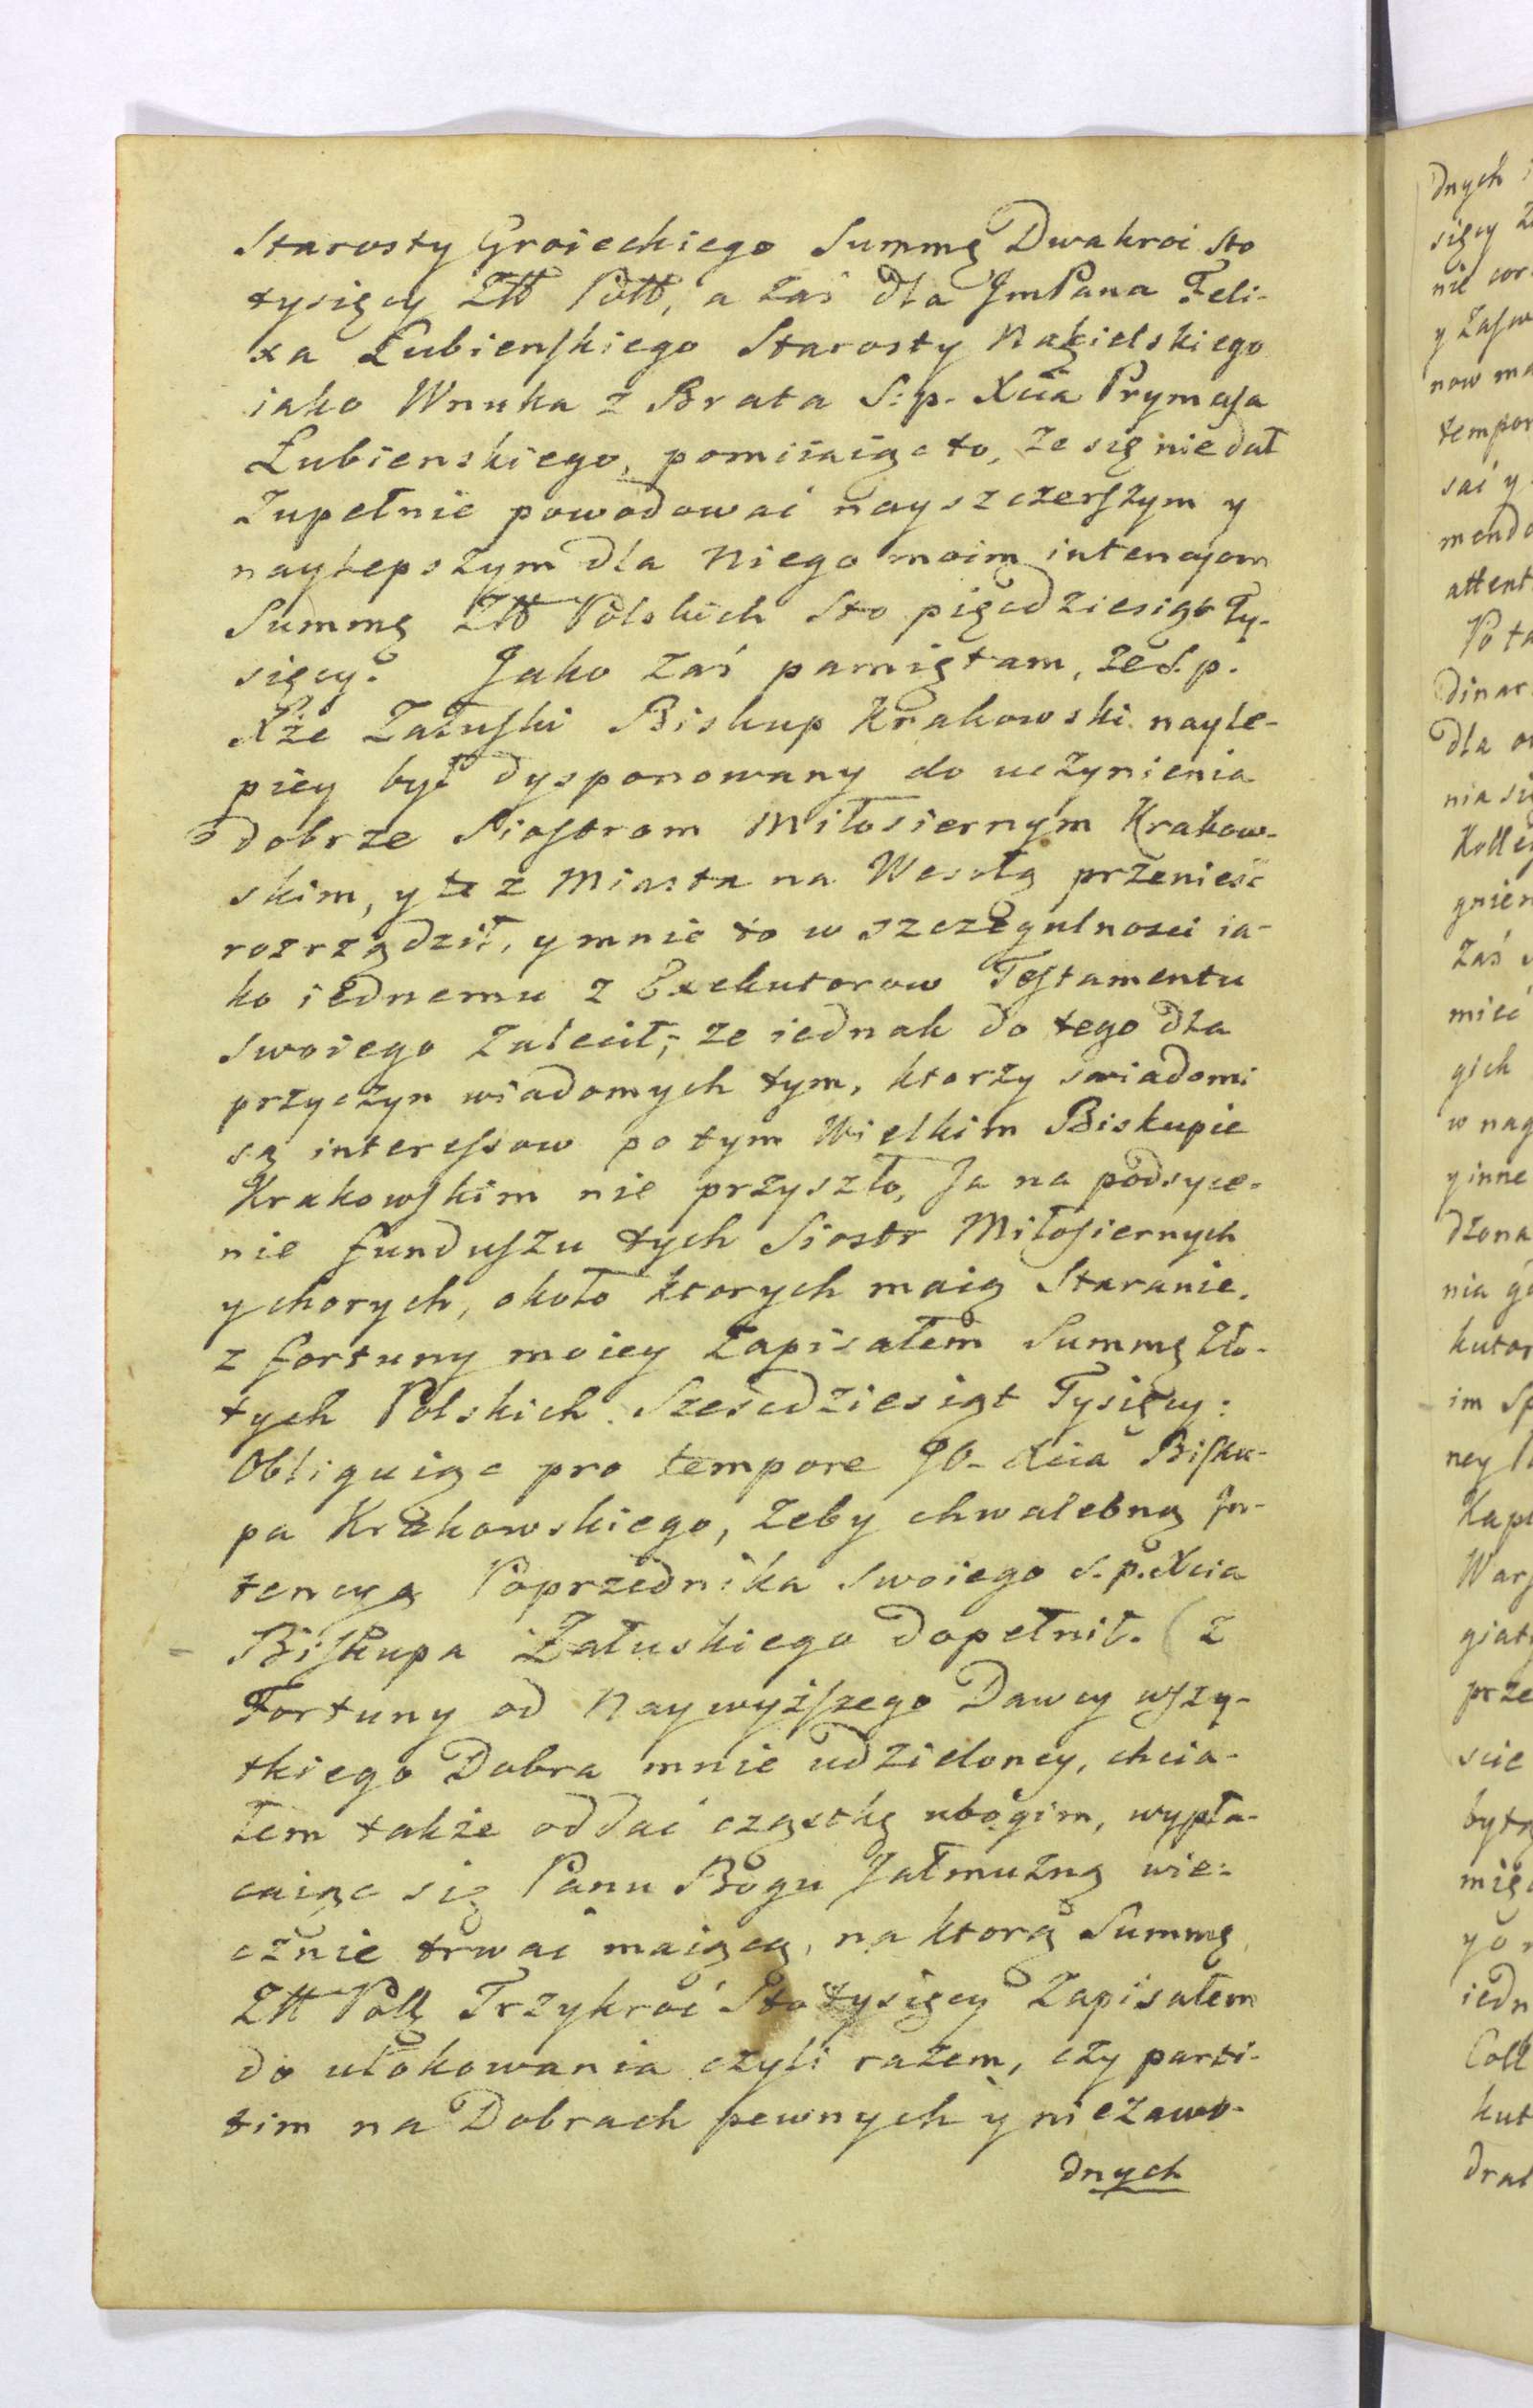 Starosty Groieckiego Summę Dwakroć sto
tysięcy Złł Poll, a zaś dla JmPana Feli-
xa Łubienſkiego Starosty Nakielskiego
iako Wnuka z Brata S:p. Xcia Prymaſa
Łubienskiego, pomiiaiąc to, że się nie dał
Zupełnie powodować nayszczerſzym y
naylepszym dla Niego moim intencyom
Summę Złł Polskich Sto pięcdziesiąt Ty-
sięcy. Jako zaś pamiętam, że S.p.
Xże Załuſki Biskup Krakowski nayle-
piey był dysponowany do uczynienia
dobrze Sioſtrom Miłosiernym Krakow-
skim, y te z Miasta na Wesołą przenieść
rozrządził, y mnie to w szczegulnosci ia-
ko iednemu z Exekutorow Teſtamentu
swoiego Zalecił; że iednak do tego dla
przyczyn wiadomych tym, ktorzy swiadomi
są intereſsow po tym Wielkim Biskupie
Krakowſkim nie przyszło, Ja na podsyce-
nie funduſzu tych Siostr Miłoſiernych
y chorych, około ktorych maią Staranie,
z fortuny moiey Zapisałem Summę Zło-
tych Polskich Sześcdziesiąt Tysięcy:
Obliguiąc pro tempore JO. Xcia Biſku-
pa Krakowskiego, żeby chwalebną In-
tencyą Poprzednika swoiego s.p. Xcia
Biſkupa Załuskiego dopełnił. (Z
Fortuny od Naywyżſzego Dawcy wſzy-
tkiego Dobra mnie udzieloney, chcia-
łem także oddać cząstkę ubogim, wypła-
caiąc się Panu Bogu Jałmużną wie-
cznie trwać maiącą, na ktorą Summę
Złł Poll Trzykroć Sto tysięcy Zapisałem
do ulokowania czyli razem, czy parti-
tim na Dobrach pewnych y niezawo-
dnych